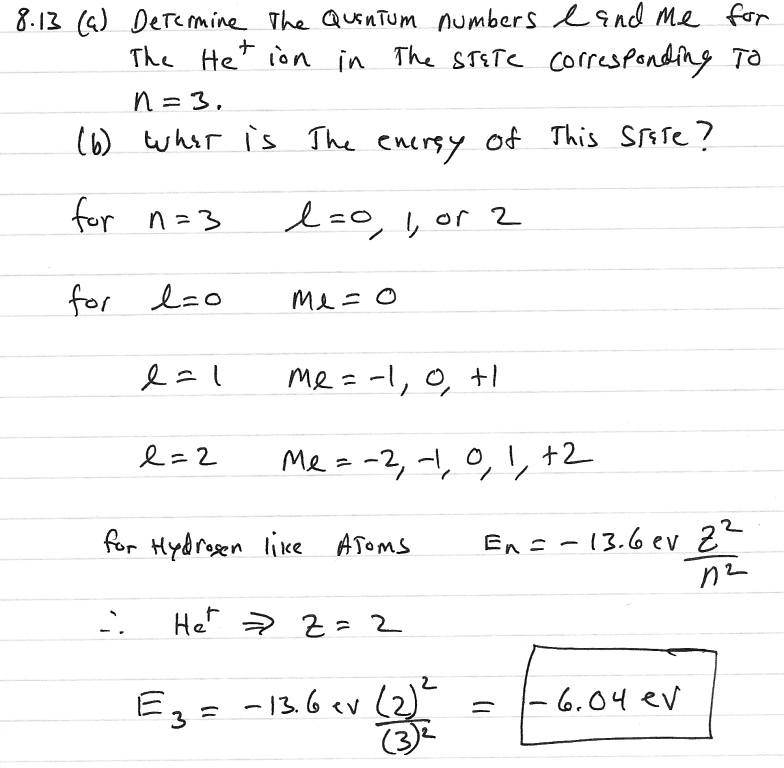 8.13 (a) Determine The Quantum numbers l and ml for
The He+ ion in The state corresponding To
n = 3.
(b) What is The energy of This State?
for n = 3 l = 0, 1, or 2
for l = 0 ml = 0
l = 1 ml = -1, 0, +1
l = 2 ml = -2, -1, 0, 1, +2
for Hydrogen like Atoms En = - 13.6 ev Z²/n²
∴ He+ ⇒ Z = 2
E₃ = -13.6 ev (2)²/(3)² = - 6.04 ev